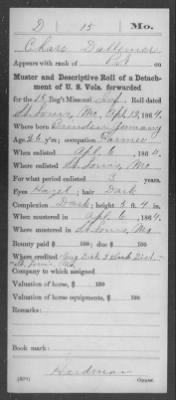 D 15 Mo.
Chas. Dallemer
Appears with rank of Pvt.
Muster and Descriptive Roll of a Detach-
ment of U. S. Vols. forwarded
for the 15 Reg't Missouri Inf. Roll dated
St. Louis, Mo., Apl. 13, 1864.
Where born Germany
Age 26 y'rs; occupation Farmer
When enlisted Apl. 6, 1864.
Where enlisted St. Louis, Mo.
For what period enlisted 3 years.
Eyes Hazel; hair Dark
Complexion Dark; height 5 ft. 4 in.
When mustered in Apl. 6, 1864
Where mustered in St. Louis, Mo.
Bounty paid $ 100; due $ 100
Where credited
St. Louis, Mo.
Company to which assigned
Valuation of horse, $ 100
Valuation of horse equipments, $ 100
Remarks:
Book mark:
Hardman
Copyist.